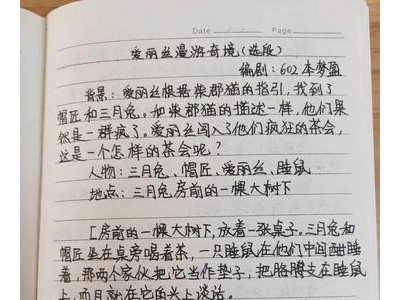 Date / / Page
爱丽丝漫游奇境(选段)
编剧:602 本梦盈
背景:爱丽丝根据柴郡猫的指引,找到了
帽匠和三月兔。如柴郡猫的描述一样,他们果
然是一群疯子。爱丽丝闯入了他们疯狂的茶会,
这是一个怎样的茶会呢?
人物:三月兔、帽匠、爱丽丝、睡鼠
地点:三月兔房前的一棵大树下
[房前的一棵大树下,放着一张桌子。三月兔和
帽匠坐在桌旁喝着茶,一只睡鼠在他们中间酣睡
着,那两个家伙把它当作垫子,把胳膊支在睡鼠
上,而且就在它的头上谈话。